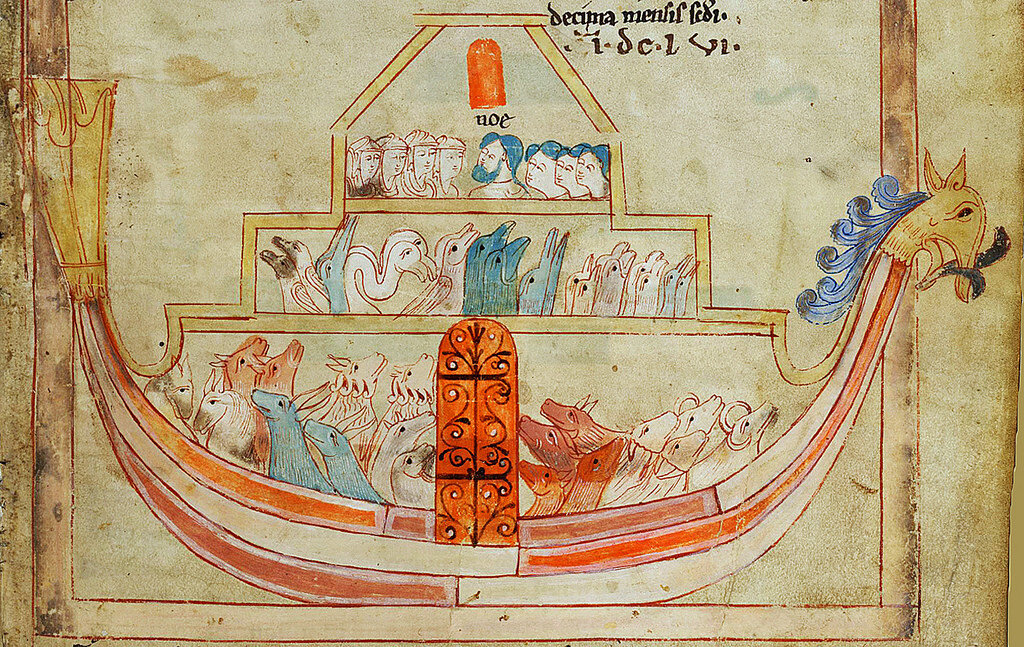 decima mensis scdi.
.i.dc.lvi.
noe